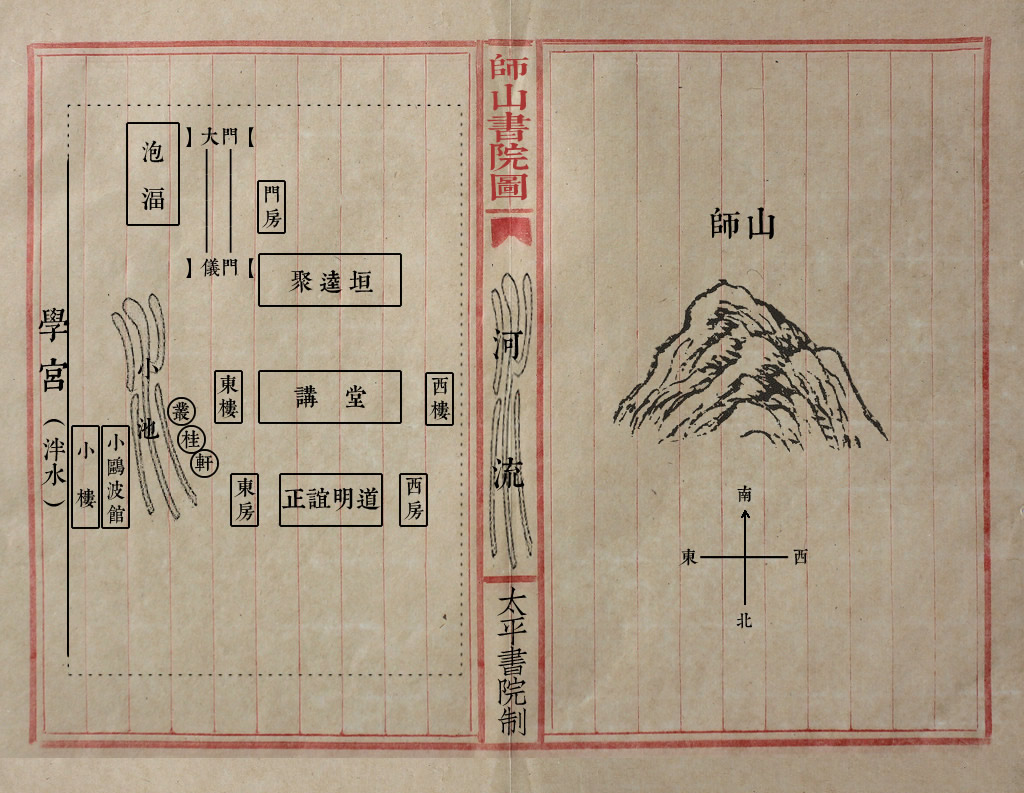 師山書院圖
河流
太平書院制
師山
南
東
西
北
泡湢
大門
門房
儀門
聚逵垣
學宮（泮水）
小池
叢桂軒
東樓
講堂
西樓
小樓
小鷗波館
東房
正誼明道
西房